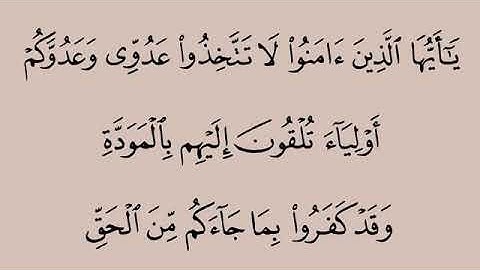 يَـٰٓأَيُّهَا ٱلَّذِينَ ءَامَنُوا۟ لَا تَتَّخِذُوا۟ عَدُوِّى وَعَدُوَّكُمْ
أَوْلِيَآءَ تُلْقُونَ إِلَيْهِم بِٱلْمَوَدَّةِ
وَقَدْ كَفَرُوا۟ بِمَا جَآءَكُم مِّنَ ٱلْحَقِّ